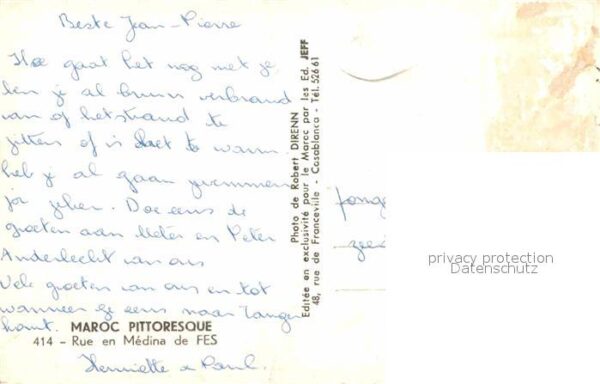 Beste Jean-Pierre
Hoe gaat het nog met je
ben je al bruin verbrand
van op het strand te
zitten of is het te warm
heb je al gaan zwemmen
zeker. Doe eens de
groeten aan Meter en Peter
Anderlecht van ons
Vele groeten van ons en tot
wanneer je eens naar Tanger
komt.
MAROC PITTORESQUE
414 - Rue en Médina de FES
Henriette & Paul.
Photo de Robert DIRENN
Editée en exclusivité pour le Maroc par les Ed. JEFF
48, rue de Franceville - Casablanca - Tél. 526 61
privacy protection
Datenschutz